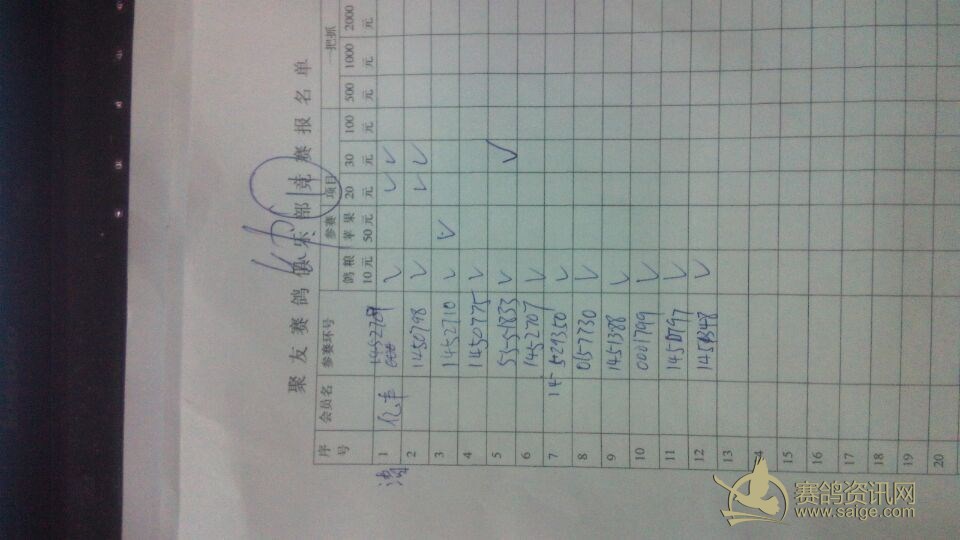 聚友赛鸽俱乐部竞赛报名单
序号 会员名 参赛环号 参赛项目 一把抓
鸽粮10元 苹果50元 20元 30元 100元 500元 1000元 2000元
1 ✓ ✓ ✓
2 1450798 ✓ ✓ ✓
3 1452710 ✓ ✓
4 1450775 ✓
5 ✓ ✓
6 1452707 ✓
7 ✓
8 0157730 ✓
9 1451388 ✓
10 0001799 ✓
11 ✓
12 ✓
13
14
15
16
17
18
19
20
赛鸽资讯网
www.saige.com